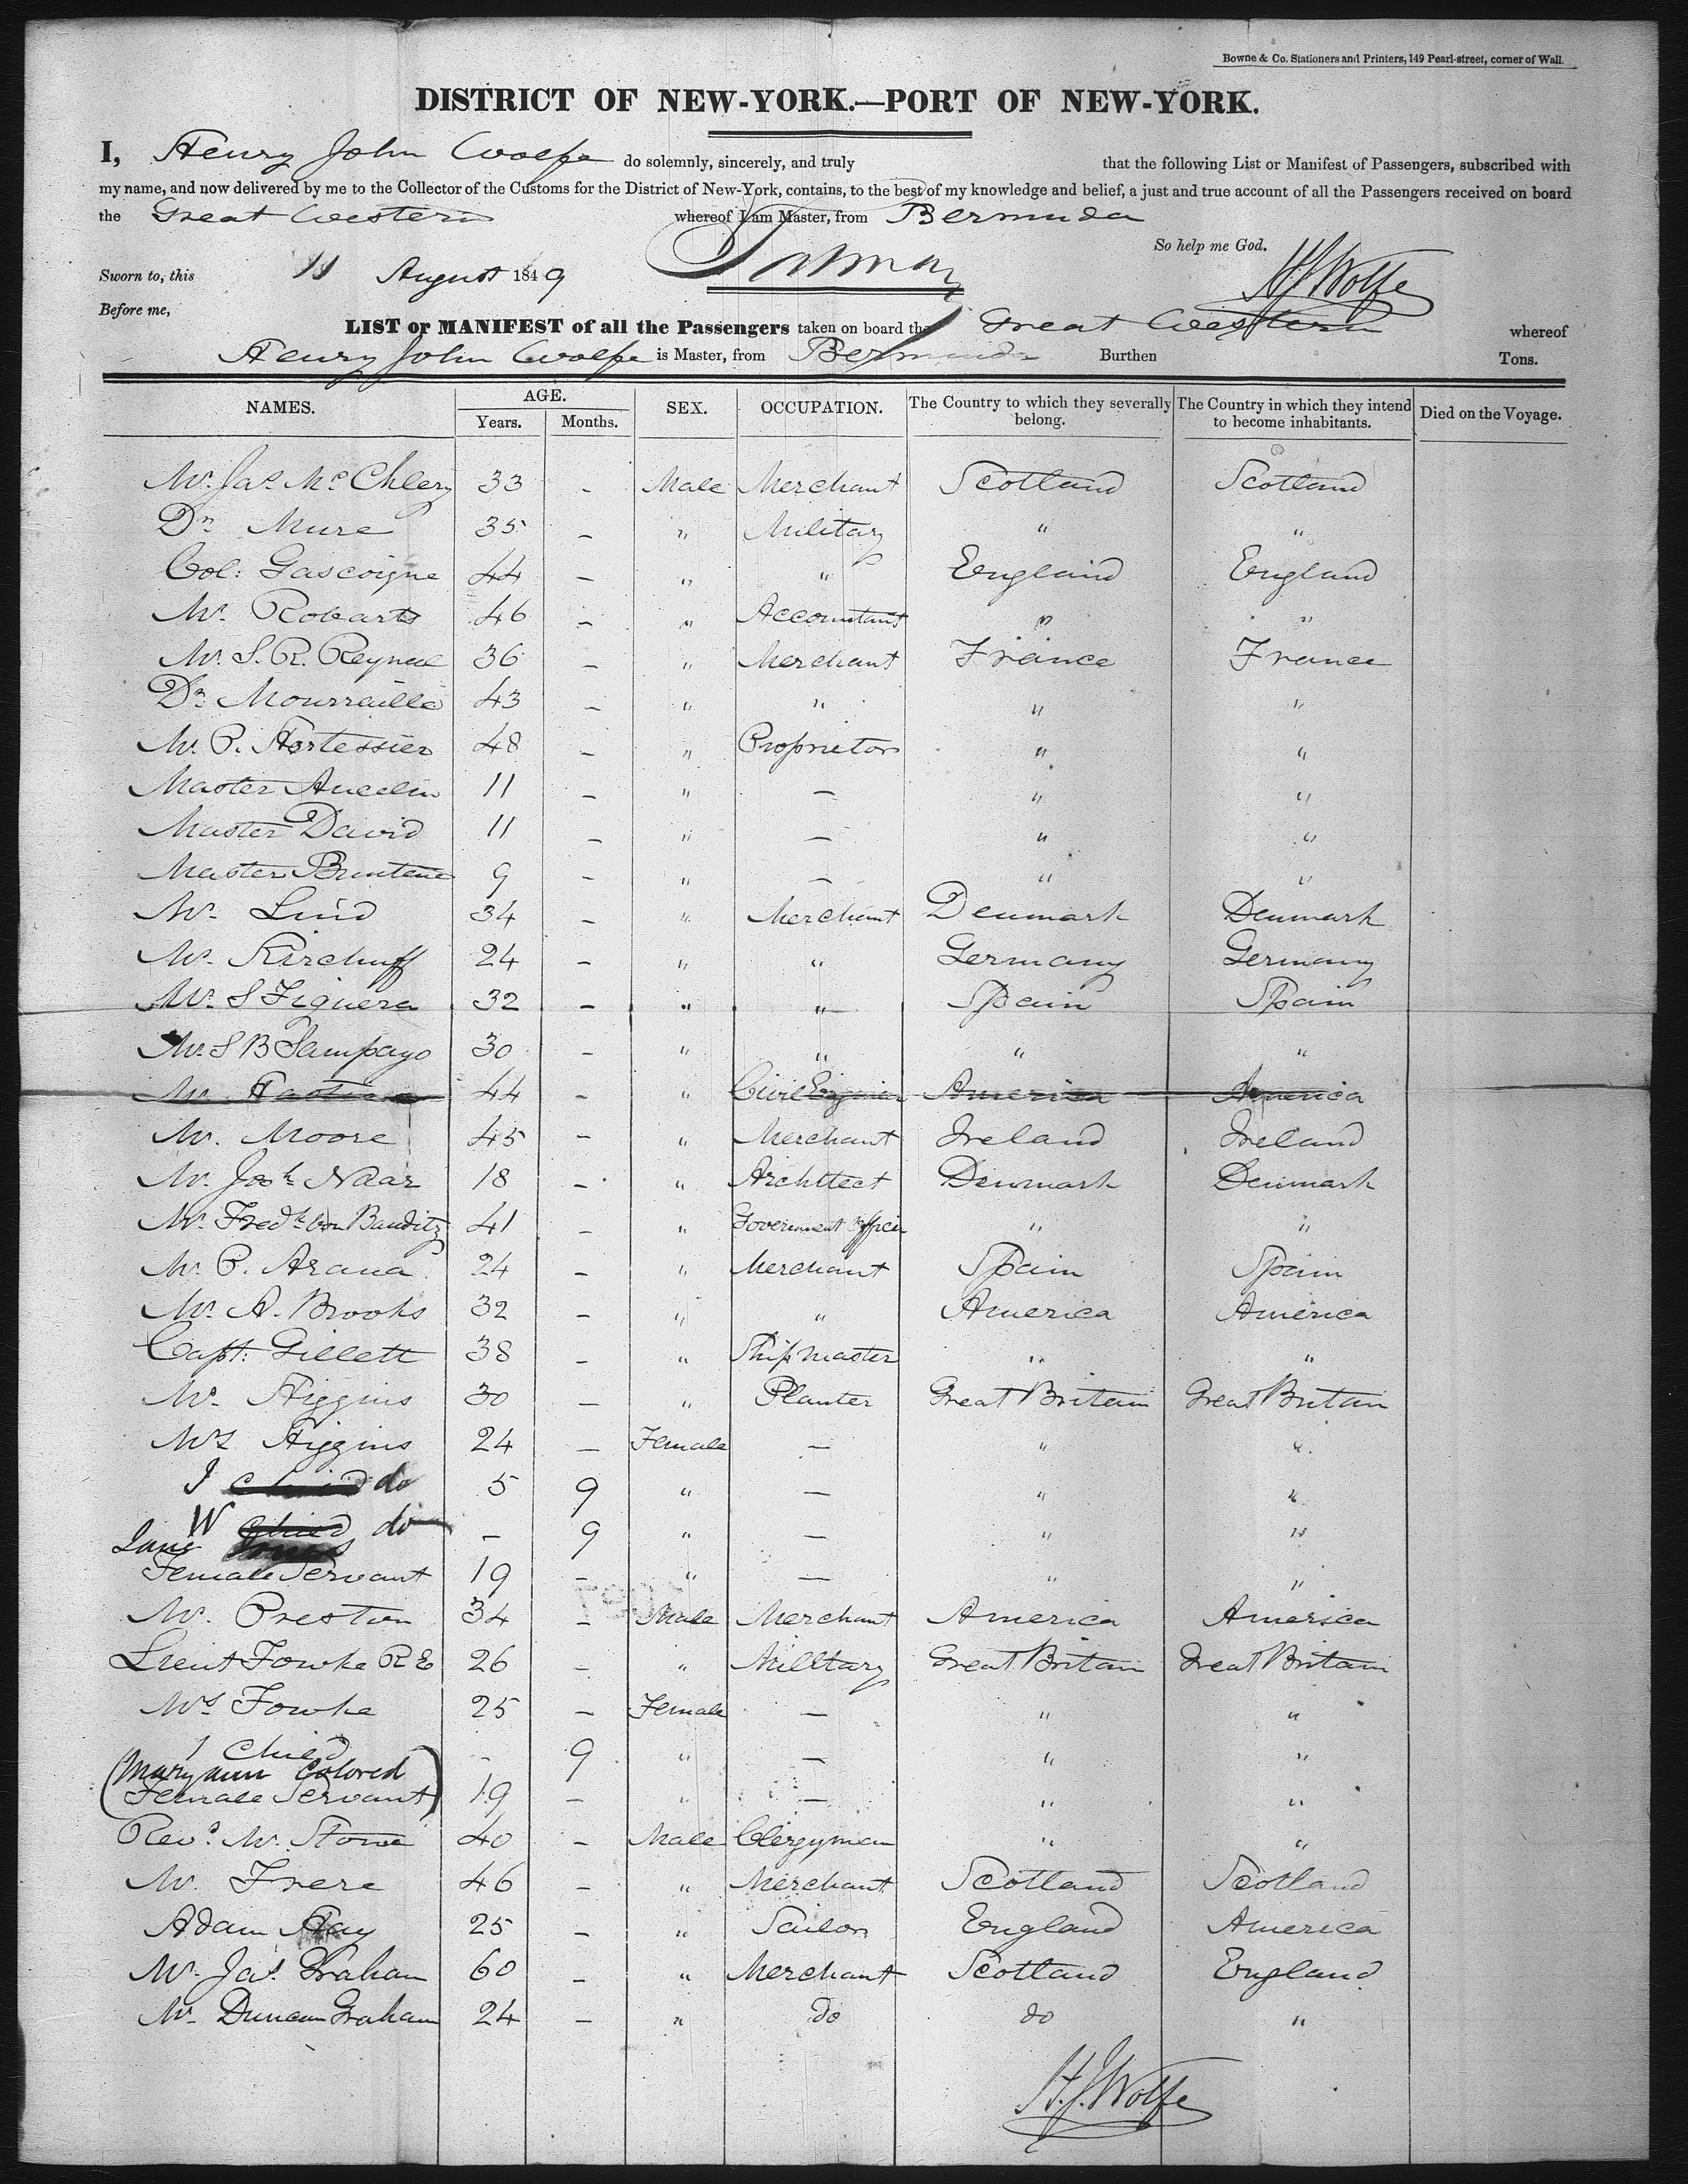 Bowne & Co. Stationers and Printers, 149 Pearl-street, corner of Wall.
DISTRICT OF NEW-YORK.—PORT OF NEW-YORK.
I, Henry John Wolfe do solemnly, sincerely, and truly that the following List or Manifest of Passengers, subscribed with
my name, and now delivered by me to the Collector of the Customs for the District of New-York, contains, to the best of my knowledge and belief, a just and true account of all the Passengers received on board
the Great Western whereof I am Master, from Bermuda
So help me God.
Sworn to, this 11 August 1849 H J Wolfe
Before me,
LIST or MANIFEST of all the Passengers taken on board the Great Western whereof
Henry John Wolfe is Master, from Bermuda Burthen Tons.
NAMES. AGE. Years. Months. SEX. OCCUPATION. The Country to which they severally belong. The Country in which they intend to become inhabitants. Died on the Voyage.
Mr. Jas. Mc Chlery 33 - Male Merchant Scotland Scotland
Dr. Mure 35 - " Military " "
Col: Gascoigne 44 - " " England England
Mr. Robarts 46 - " Accountant " "
Mr. S. R. Reyneal 36 - " Merchant France France
Dr. Mourraille 43 - " " " "
Mr. P. Hortessier 48 - " Proprietor " "
Master Ancelin 11 - " - " "
Master David 11 - " - " "
Master 9 - " - " "
Mr. Lind 34 - " Merchant Denmark Denmark
Mr. Kirchuff 24 - " " Germany Germany
Mr. S Figuera 32 - " " Spain Spain
Mr. S B Sampayo 30 - " " " "
Mr. 44 - " Civil Engineer America America
Mr. Moore 45 - " Merchant Ireland Ireland
Mr. Josh. Naar 18 - " Architect Denmark Denmark
Mr. Fredk. von Bauditz 41 - " Government Officer " "
Mr. P. Arana 24 - " Merchant Spain Spain
Mr. A. Brooks 32 - " " America America
Capt: Gillett 38 - " Ship master " "
Mr. Higgins 30 - " Planter Great Britain Great Britain
Mrs Higgins 24 - Female - " "
I child do 5 9 " - " "
W child do - 9 " - " "
Jane
Female Servant 19 - " - " "
Mr. Preston 34 - Male Merchant America America
Lieut Fowke R E 26 - " Military Great Britain Great Britain
Mrs Fowke 25 - Female - " "
1 Child - 9 " - " "
(Mary ann Colored
Female Servant) 19 - " - " "
Revd. Mr. Stowe 40 - Male Clergyman " "
Mr. Frere 46 - " Merchant Scotland Scotland
Adam Hay 25 - " Sailor England America
Mr. Jas. Graham 60 - " Merchant Scotland England
Mr. Duncan Graham 24 - " do do "
H. J. Wolfe